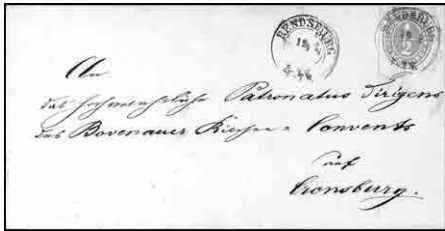 RENDSBURG
RENDSBURG
An
das hochwohllöbliche Patronatus Dirigens
des Bovenauer Kirchen Convents
auf
Cronsburg.